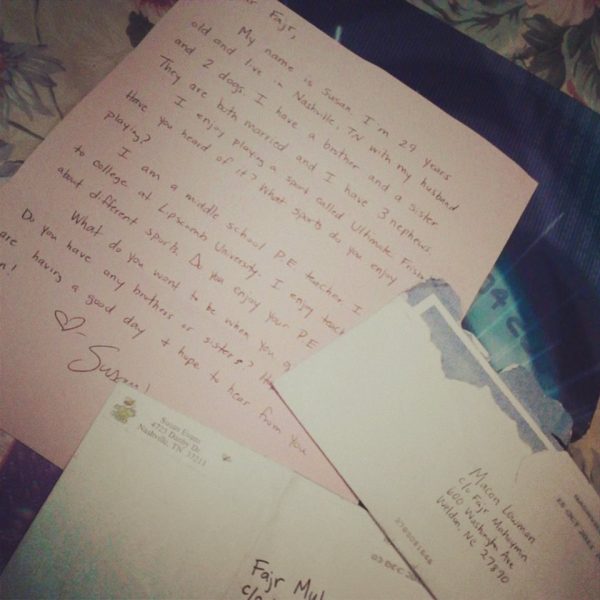 Fajr,
My name is Susan. I'm 29 years
old and live in Nashville, TN with my husband
and 2 dogs. I have a brother and a sister
They are both married and I have 3 nephews
I enjoy playing a sport called Ultimate
Have you heard of it? What sports do you enjoy
playing?
I am a middle school PE teacher. I
to college at Lipscomb University. I enjoy
about different sports. Do you enjoy your PE
What do you want to be when you
Do you have any brothers or sisters?
are having a good day + hope to hear from you
Susan
Susan Evans
4723 Darby Dr
Nashville, TN 37211
Fajr
c/o
03 DEC
Macon Lowman
c/o Fajr
600 Washington Ave
Weldon, NC 27890